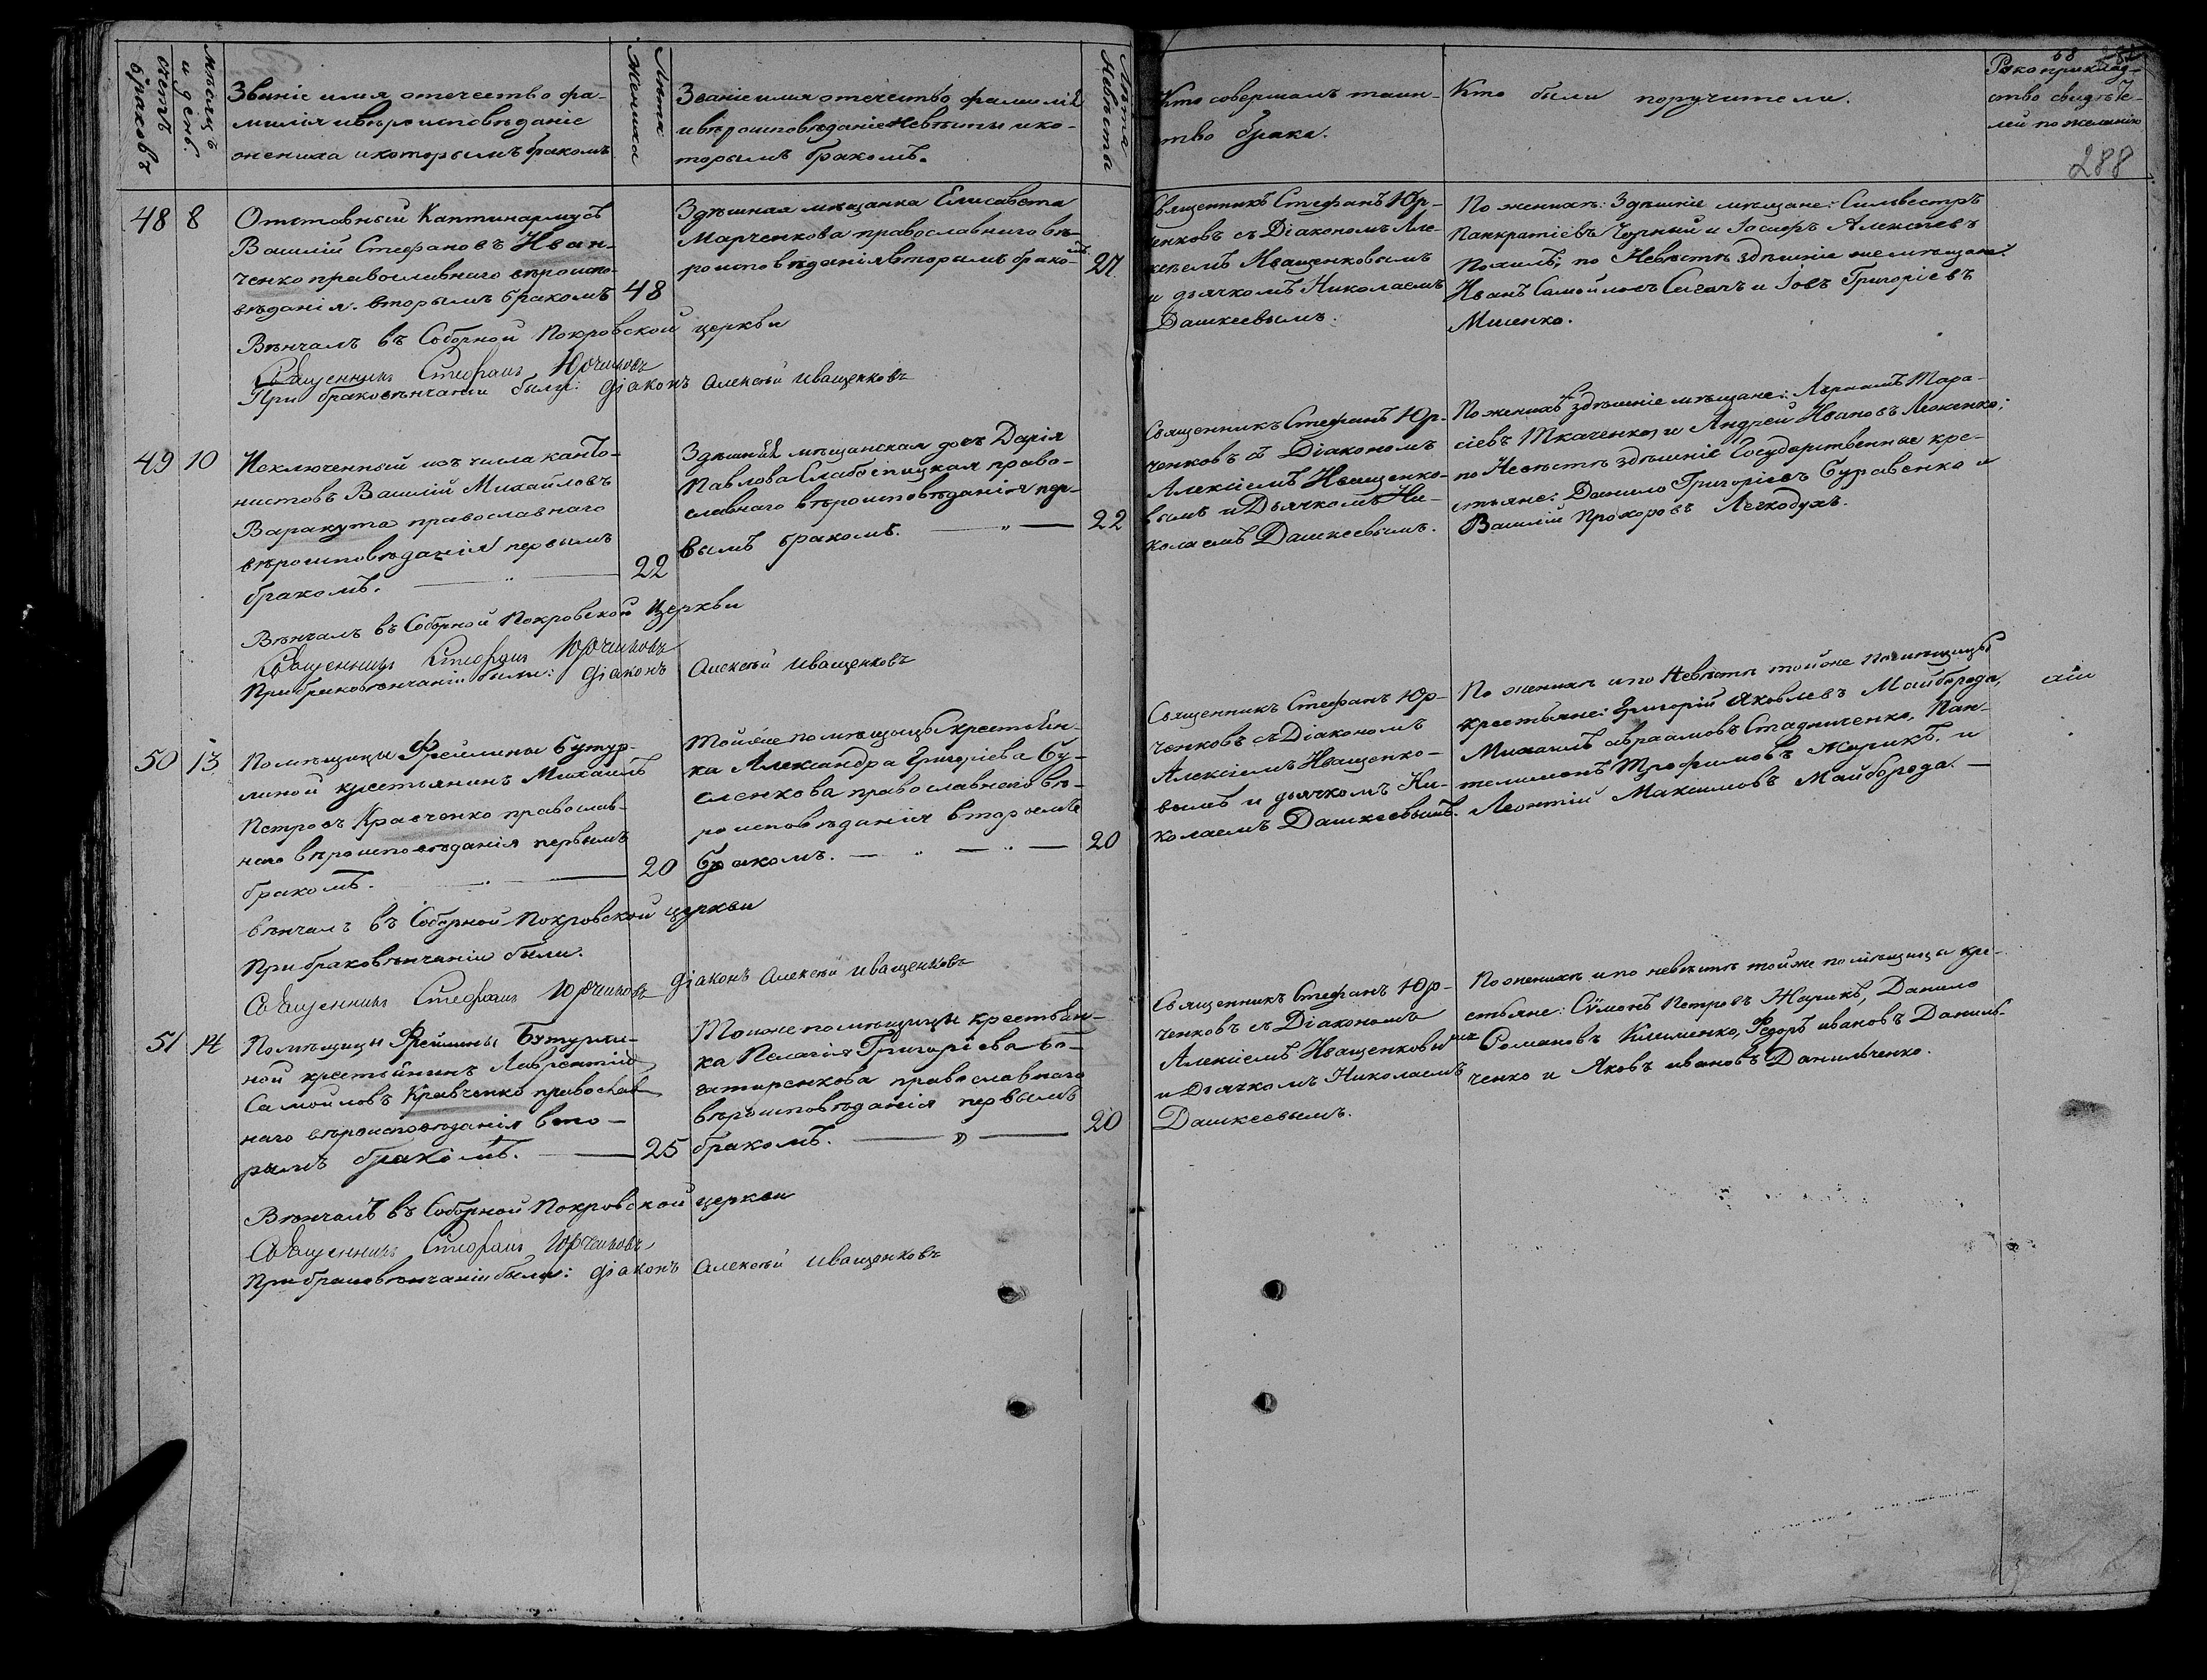 счетъ браковъ
мѣсяцъ и день.
Званіе имя отечество фа-
милія и вѣроисповѣданіе
жениха и которымъ бракомъ
Лѣта Жениха
Званіе имя отечество фамилія
и вѣроисповѣданіе невѣсты и ко-
торымъ бракомъ.
Лѣта Невѣсты
Кто совершалъ таин-
ство брака.
Кто были поручители.
58
Рукоприклад-
ство свидѣте-
лей по желанію
288
48 8
Отставный Каптинармусъ
Василій Стефановъ Иван-
ченко православнаго вѣроиспо-
вѣданія. вторымъ бракомъ 48
Здѣшная мѣщанка Елисавета
Марченкова православнаго вѣ-
роисповѣданія вторымъ брако- 27
мъ
Священникъ Стефанъ Юр-
ченковъ съ Діакономъ Але-
ксѣемъ Иващенковымъ
и дьячкомъ Николаемъ
Дашкеевымъ.
По женихѣ: Здѣшніе мѣщане: Сильвестръ
Панкратіевъ Чорный и Іосифъ Алексѣевъ
по Невѣстѣ здѣшніе же мѣщане:
Иванъ Самойловъ и Іовъ Григоріевъ
Мисенко.
Вѣнчалъ въ Соборной Покровской церкви
Священникъ Стефанъ Юрченковъ
При браковѣнчаніи были: діаконъ Алексѣй Иващенковъ
49 10
Исключенный изъ числа канто-
нистовъ Василій Михайловъ
Варакута православнаго
вѣроисповѣданія первымъ
бракомъ. 22
Здѣшная мѣщанская дочь Дарія
Павлова Слабоспицкая право-
славнаго вѣроисповѣданія пер-
вымъ бракомъ. 22
Священникъ Стефанъ Юр-
ченковъ съ Діакономъ
Алексіемъ Иващенко-
вымъ и Дьячкомъ Ни-
колаемъ Дашкеевымъ.
По женихѣ здѣшніе мѣщане: Тара-
сіевъ Ткаченко и Андрей Ивановъ
по Невѣстѣ здѣшніе Государственные кре-
стьяне: Данило Григоріевъ Буравенко и
Василій Прохоровъ Легкодухъ.
Вѣнчалъ въ Соборной Покровской Церкви
Священникъ Стефанъ Юрченковъ
При браковѣнчаніи были: діаконъ Алексѣй Иващенковъ
50 13
Помѣщицы Фрейлины Бутур-
линой крестьянинъ Михаилъ
Петровъ Кравченко православ-
наго вѣроисповѣданія первымъ
бракомъ. 20
Тойже помѣщицы крестьян-
ка Александра Григоріева Бу-
сленкова православнаго вѣ-
роисповѣданія вторымъ
бракомъ. 20
Священникъ Стефанъ Юр-
ченковъ съ Діакономъ
Алексіемъ Иващенко-
вымъ и дьячкомъ Ни-
колаемъ Дашкеевымъ.
По женихѣ и по Невѣстѣ тойже помѣщицы
крестьяне: Григорій Яковлевъ Майборода,
Михаилъ Авраамовъ Стадниченко, Пан-
телимонъ Трофимовъ Жарикъ. и
Леонтій Максимовъ Майборода.
вѣнчалъ въ Соборной Покровской церкви
При браковѣнчаніи были.
Священникъ Стефанъ Юрченковъ діаконъ Алексѣй Иващенковъ
51 14
Помѣщицы Фрейлины Бутурли-
ной крестьянинъ Лаврентій
Самойловъ Кравченко православ-
наго вѣроисповѣданія вто-
рымъ бракомъ. 25
Тойже помѣщицы крестьян-
ка Пелагія Григоріева Бо-
гатиренкова православнаго
вѣроисповѣданія первымъ
бракомъ. 20
Священникъ Стефанъ Юр-
ченковъ съ Діакономъ
Алексіемъ Иващенковымъ
и Дьячкомъ Николаемъ
Дашкеевымъ.
По женихѣ и по невѣстѣ тойже помѣщицы кре-
стьяне: Сѵмонъ Петровъ Жарикъ, Данило
Романовъ Клименко, Федоръ Ивановъ Даниль-
ченко и Яковъ Ивановъ Данильченко.
Вѣнчалъ въ Соборной Покровской церкви
Священникъ Стефанъ Юрченковъ
При браковѣнчаніи были: діаконъ Алексѣй Иващенковъ